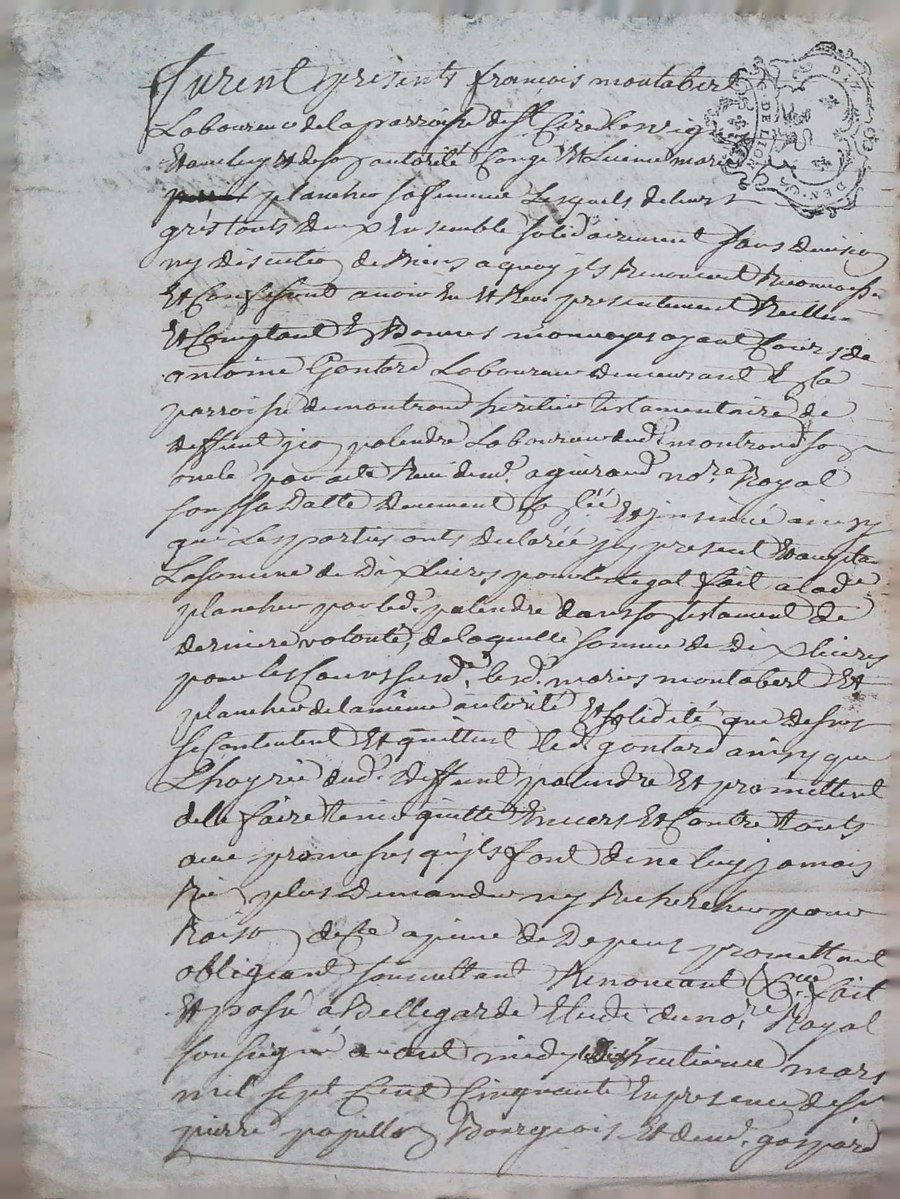 furent presents françois montabert
Laboureur de la parroisse de St Cire les vig
Et avec luy Et de son autorité Congé Et Licence marie
plancher sa femme Lesquels de leurs
grés touts deux Ensemble solidairement sans division
ny discution de Biens a quoy jls Renoncent Reconnoissent
Et Confessent avoir Eu Et Receu presentement Reellem
Et Comptant En Bonnes monnoyes ayant Cours de
antoine Gontard Laboureur demeurant En la
parroisse de montrond heritier testamentaire de
deffunt palendre Laboureur dud. montrond son
oncle par acte Receu de me. aguiraud no.re Royal
sous sa datte Deuement Et jnsinué ainsy
que Les parties onts declarée jcy present Et acceptan
La somme de Dix Livres pour le legat fait a lad.
plancher par led. palendre dans son testament de
derniere volonté, de laquelle somme de Dix Livres
pour les Causes susd. lesd. mariés montabert Et
plancher de la même autorité Et solidité que dessus
se Contentent Et quittent led. gontard ainsy que
L'hoyrie dud. deffunt palendre Et promettent
de le faire tenir quitte Envers Et Contre touts
avec promesses qu'jls font de ne luy jamais
Rien plus Demander ny Rechercher pour
Raison de ce a peine de Depens promettant
obligeant soumettant Renonceant &c fait
Et passé a Bellegarde Etude du no.re Royal
soussigné avant midy le huitieme mars
mil sept Cent Cinquante En presence de sr
pierre papillon Bourgeois Et de me. gaspard
DE LION
DEN